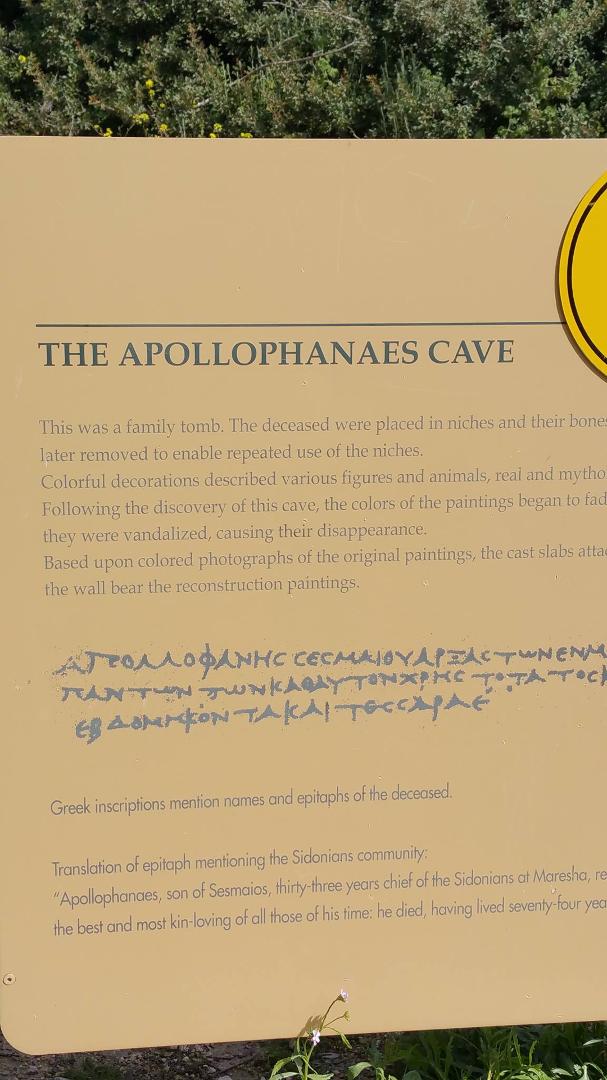 THE APOLLOPHANAES CAVE
This was a family tomb. The deceased were placed in niches and their bones
later removed to enable repeated use of the niches.
Colorful decorations described various figures and animals, real and mytho
Following the discovery of this cave, the colors of the paintings began to fad
they were vandalized, causing their disappearance.
Based upon colored photographs of the original paintings, the cast slabs atta
the wall bear the reconstruction paintings.
ΑΠΟΛΛΟΦΑΝΗϹ ϹΕϹΜΑΙΟΥ ΑΡΞΑϹ ΤΩΝ ΕΝ Μ
ΠΑΝΤΩΝ ΤΩΝ ΚΑΘ ΑΥΤΟΝ ΧΡΗϹ ΤΟΤΑΤΟϹ Κ
ΕΒΔΟΜΗΚΟΝΤΑ ΚΑΙ ΤΕϹϹΑΡΑ
Greek inscriptions mention names and epitaphs of the deceased.
Translation of epitaph mentioning the Sidonians community:
“Apollophanaes, son of Sesmaios, thirty-three years chief of the Sidonians at Maresha, re
the best and most kin-loving of all those of his time: he died, having lived seventy-four yea